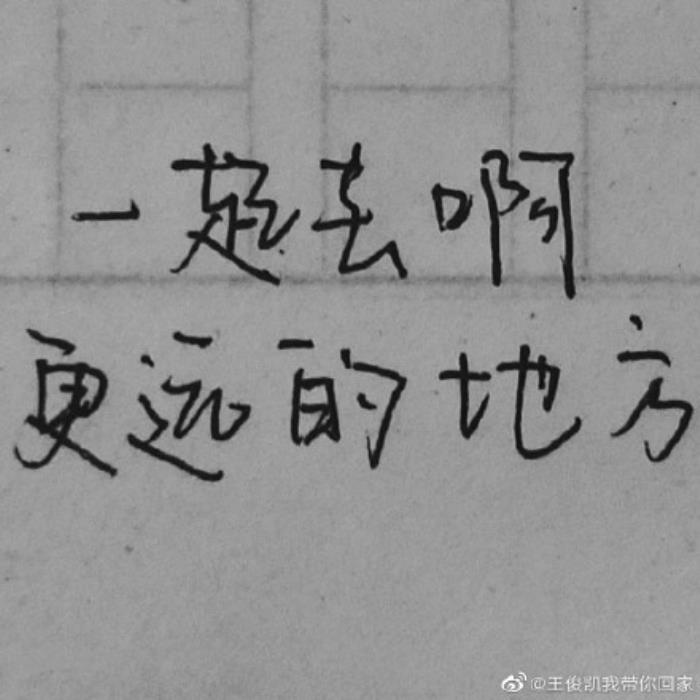 一起去啊
更远的地方
@王俊凯我带你回家